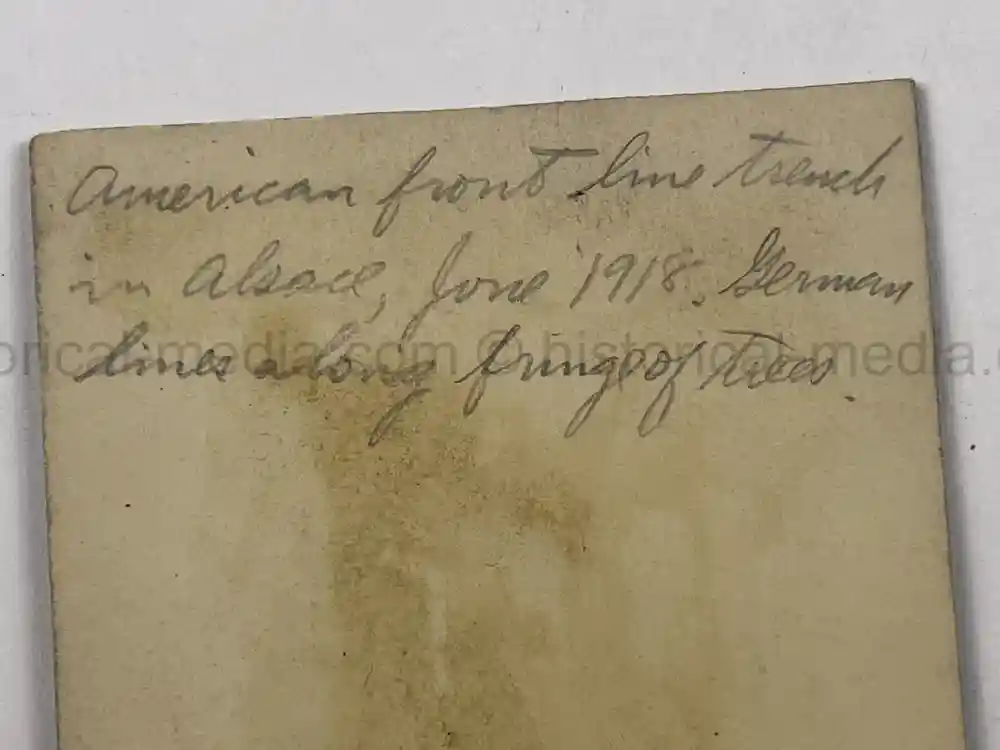 American front line trench
in Alsace, June 1918. German
lines along fringe of trees.
historical-media.com © historical-media.com